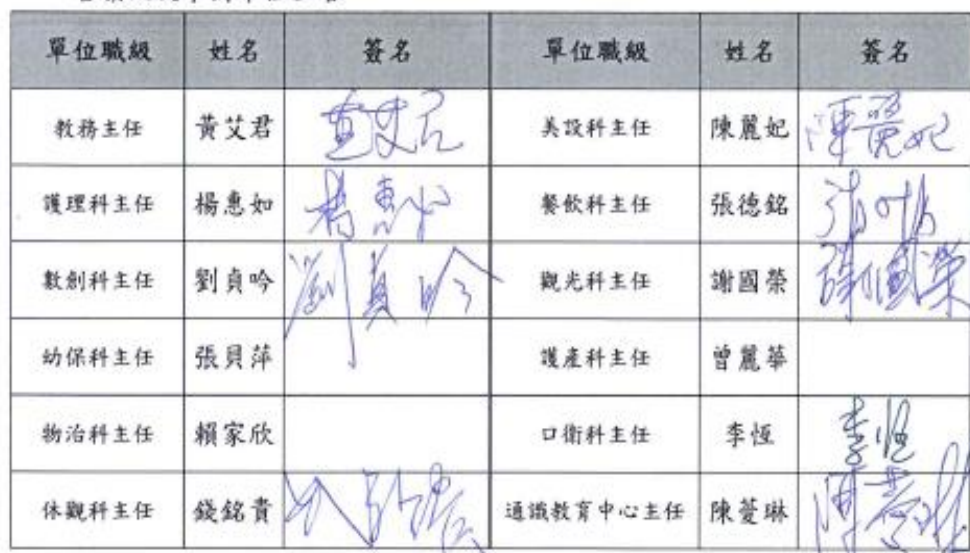 單位職級 姓名 簽名 單位職級 姓名 簽名
教務主任 黃艾君 黃艾君 美設科主任 陳麗妃 陳麗妃
護理科主任 楊惠如 楊惠如 餐飲科主任 張德銘
數創科主任 劉貞吟 劉貞吟 觀光科主任 謝國榮 謝國榮
幼保科主任 張貝萍 護產科主任 曾麗華
物治科主任 賴家欣 口衛科主任 李恆 李恆
休觀科主任 錢銘貴 通識教育中心主任 陳薆琳